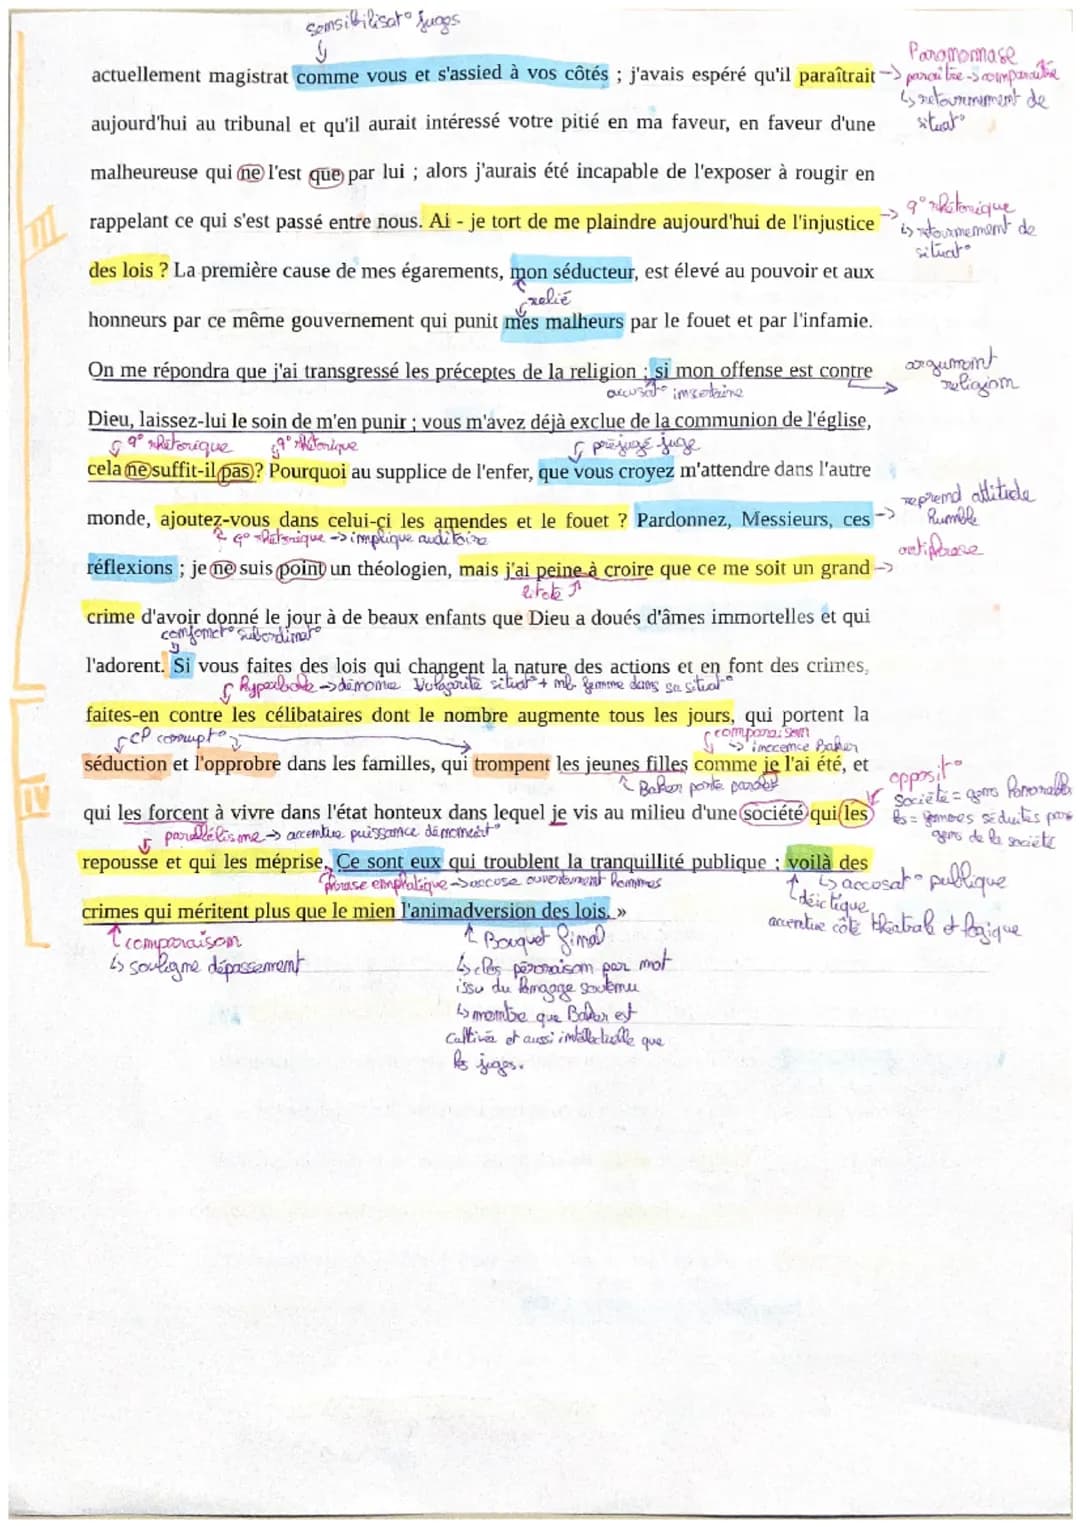 sensibilisat° juges
actuellement magistrat comme vous et s'assied à vos côtés ; j'avais espéré qu'il paraîtrait
Paronomase
paraître -> comparaître
↳ retournement de
situat°
aujourd'hui au tribunal et qu'il aurait intéressé votre pitié en ma faveur, en faveur d'une
malheureuse qui ne l'est que par lui ; alors j'aurais été incapable de l'exposer à rougir en
III
rappelant ce qui s'est passé entre nous. Ai - je tort de me plaindre aujourd'hui de l'injustice
q° rhétorique
↳ retournement de
situat°
des lois ? La première cause de mes égarements, mon séducteur, est élevé au pouvoir et aux
relié
honneurs par ce même gouvernement qui punit mes malheurs par le fouet et par l'infamie.
On me répondra que j'ai transgressé les préceptes de la religion ; si mon offense est contre
argument
religion
accusat° incertaine
Dieu, laissez-lui le soin de m'en punir ; vous m'avez déjà exclue de la communion de l'église,
q° rhétorique
q° rhétorique
préjugé juge
cela ne suffit-il pas ? Pourquoi au supplice de l'enfer, que vous croyez m'attendre dans l'autre
monde, ajoutez-vous dans celui-çi les amendes et le fouet ? Pardonnez, Messieurs, ces
reprend attitude
humble
q° rhétorique -> implique auditoire
réflexions ; je ne suis point un théologien, mais j'ai peine à croire que ce me soit un grand
antiphrase
litote
crime d'avoir donné le jour à de beaux enfants que Dieu a doués d'âmes immortelles et qui
subordinat°
l'adorent. Si vous faites des lois qui changent la nature des actions et en font des crimes,
hyperbole -> dénonce vulgarité situat° + nb femme dans sa situat°
faites-en contre les célibataires dont le nombre augmente tous les jours, qui portent la
CP corrupt°
comparaison
-> inocence Baker
séduction et l'opprobre dans les familles, qui trompent les jeunes filles comme je l'ai été, et
Baker porte parole
opposit°
société = gens honorable
les = femmes séduites par
gens de la société
IV
qui les forcent à vivre dans l'état honteux dans lequel je vis au milieu d'une société qui les
parallélisme -> accentue puissance
repousse et qui les méprise. Ce sont eux qui troublent la tranquillité publique ; voilà des
phrase emphatique -> accuse ouvertement hommes
↳ accusat° publique
déictique
accentue côté théatrale et logique
crimes qui méritent plus que le mien l'animadversion des lois. »
comparaison
↳ souligne dépassement
Bouquet final
↳ clos péroraison par mot
issu du langage soutenu
↳ montre que Baker est
cultivée et aussi intellectuelle que
les juges.